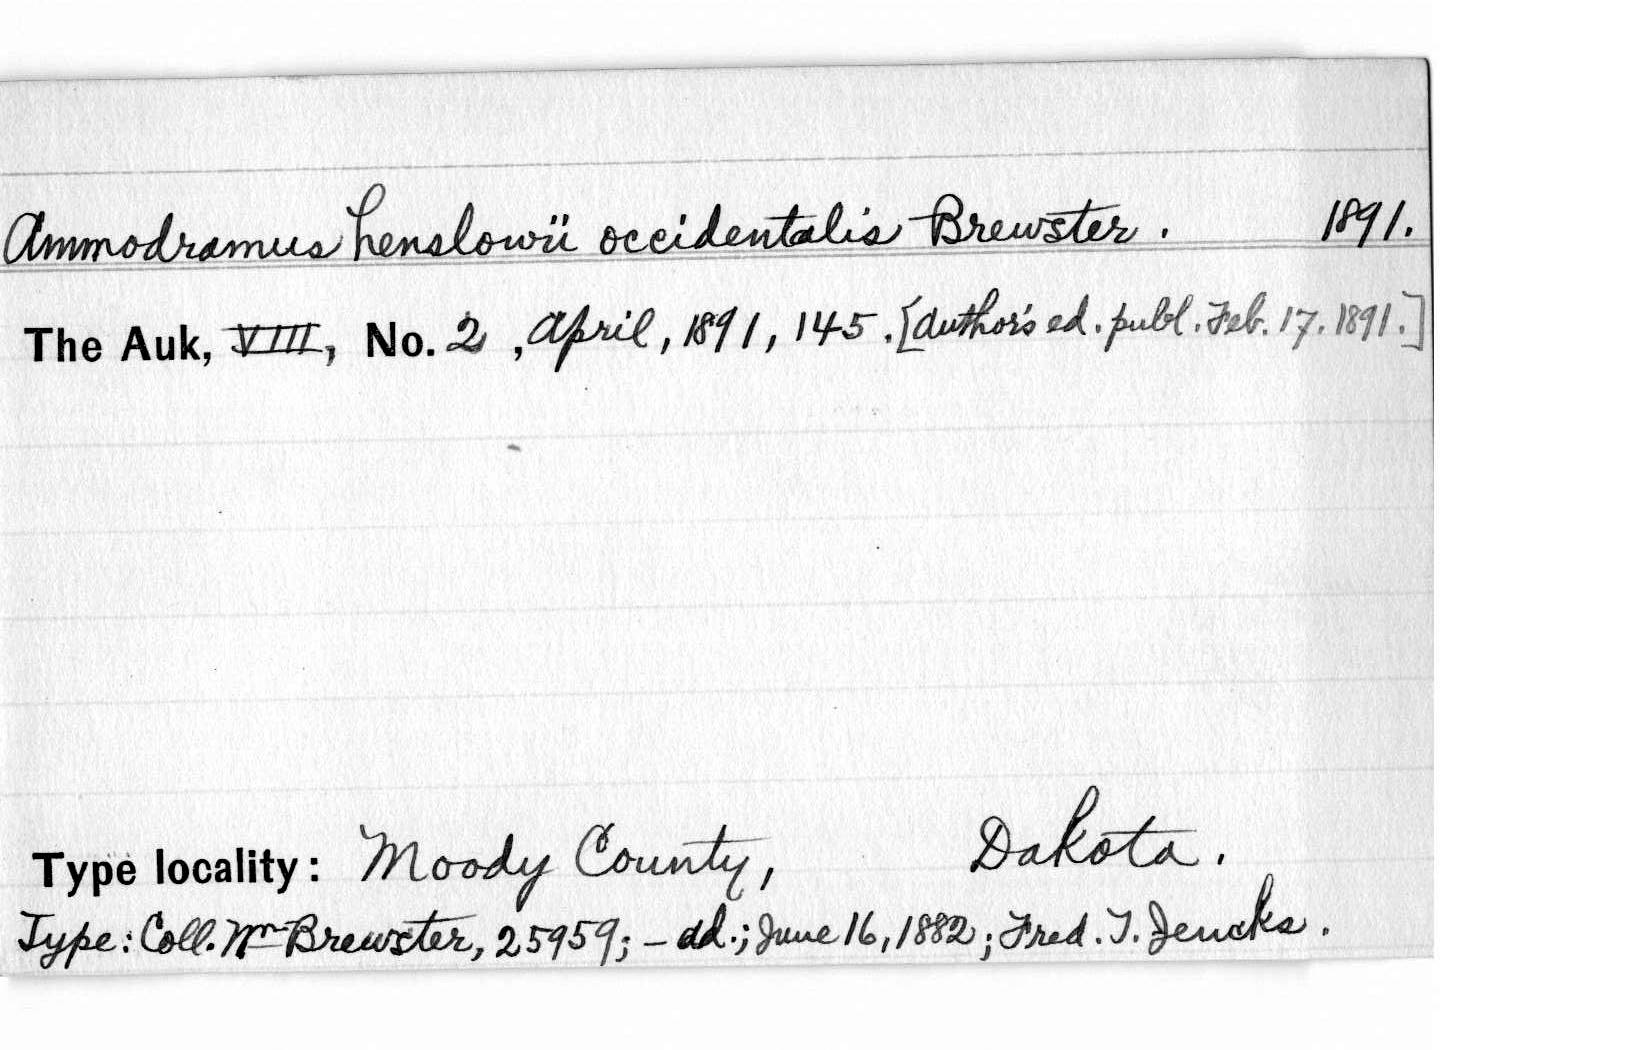 Ammodramus henslowii occidentalis Brewster. 1891.
The Auk, VIII, No. 2, April, 1891, 145. [Author's ed. publ. Feb. 17. 1891.]
Type locality: Moody County, Dakota.
Type: Coll. Wm Brewster, 25959; – ad.; June 16, 1882; Fred. T. Jencks.